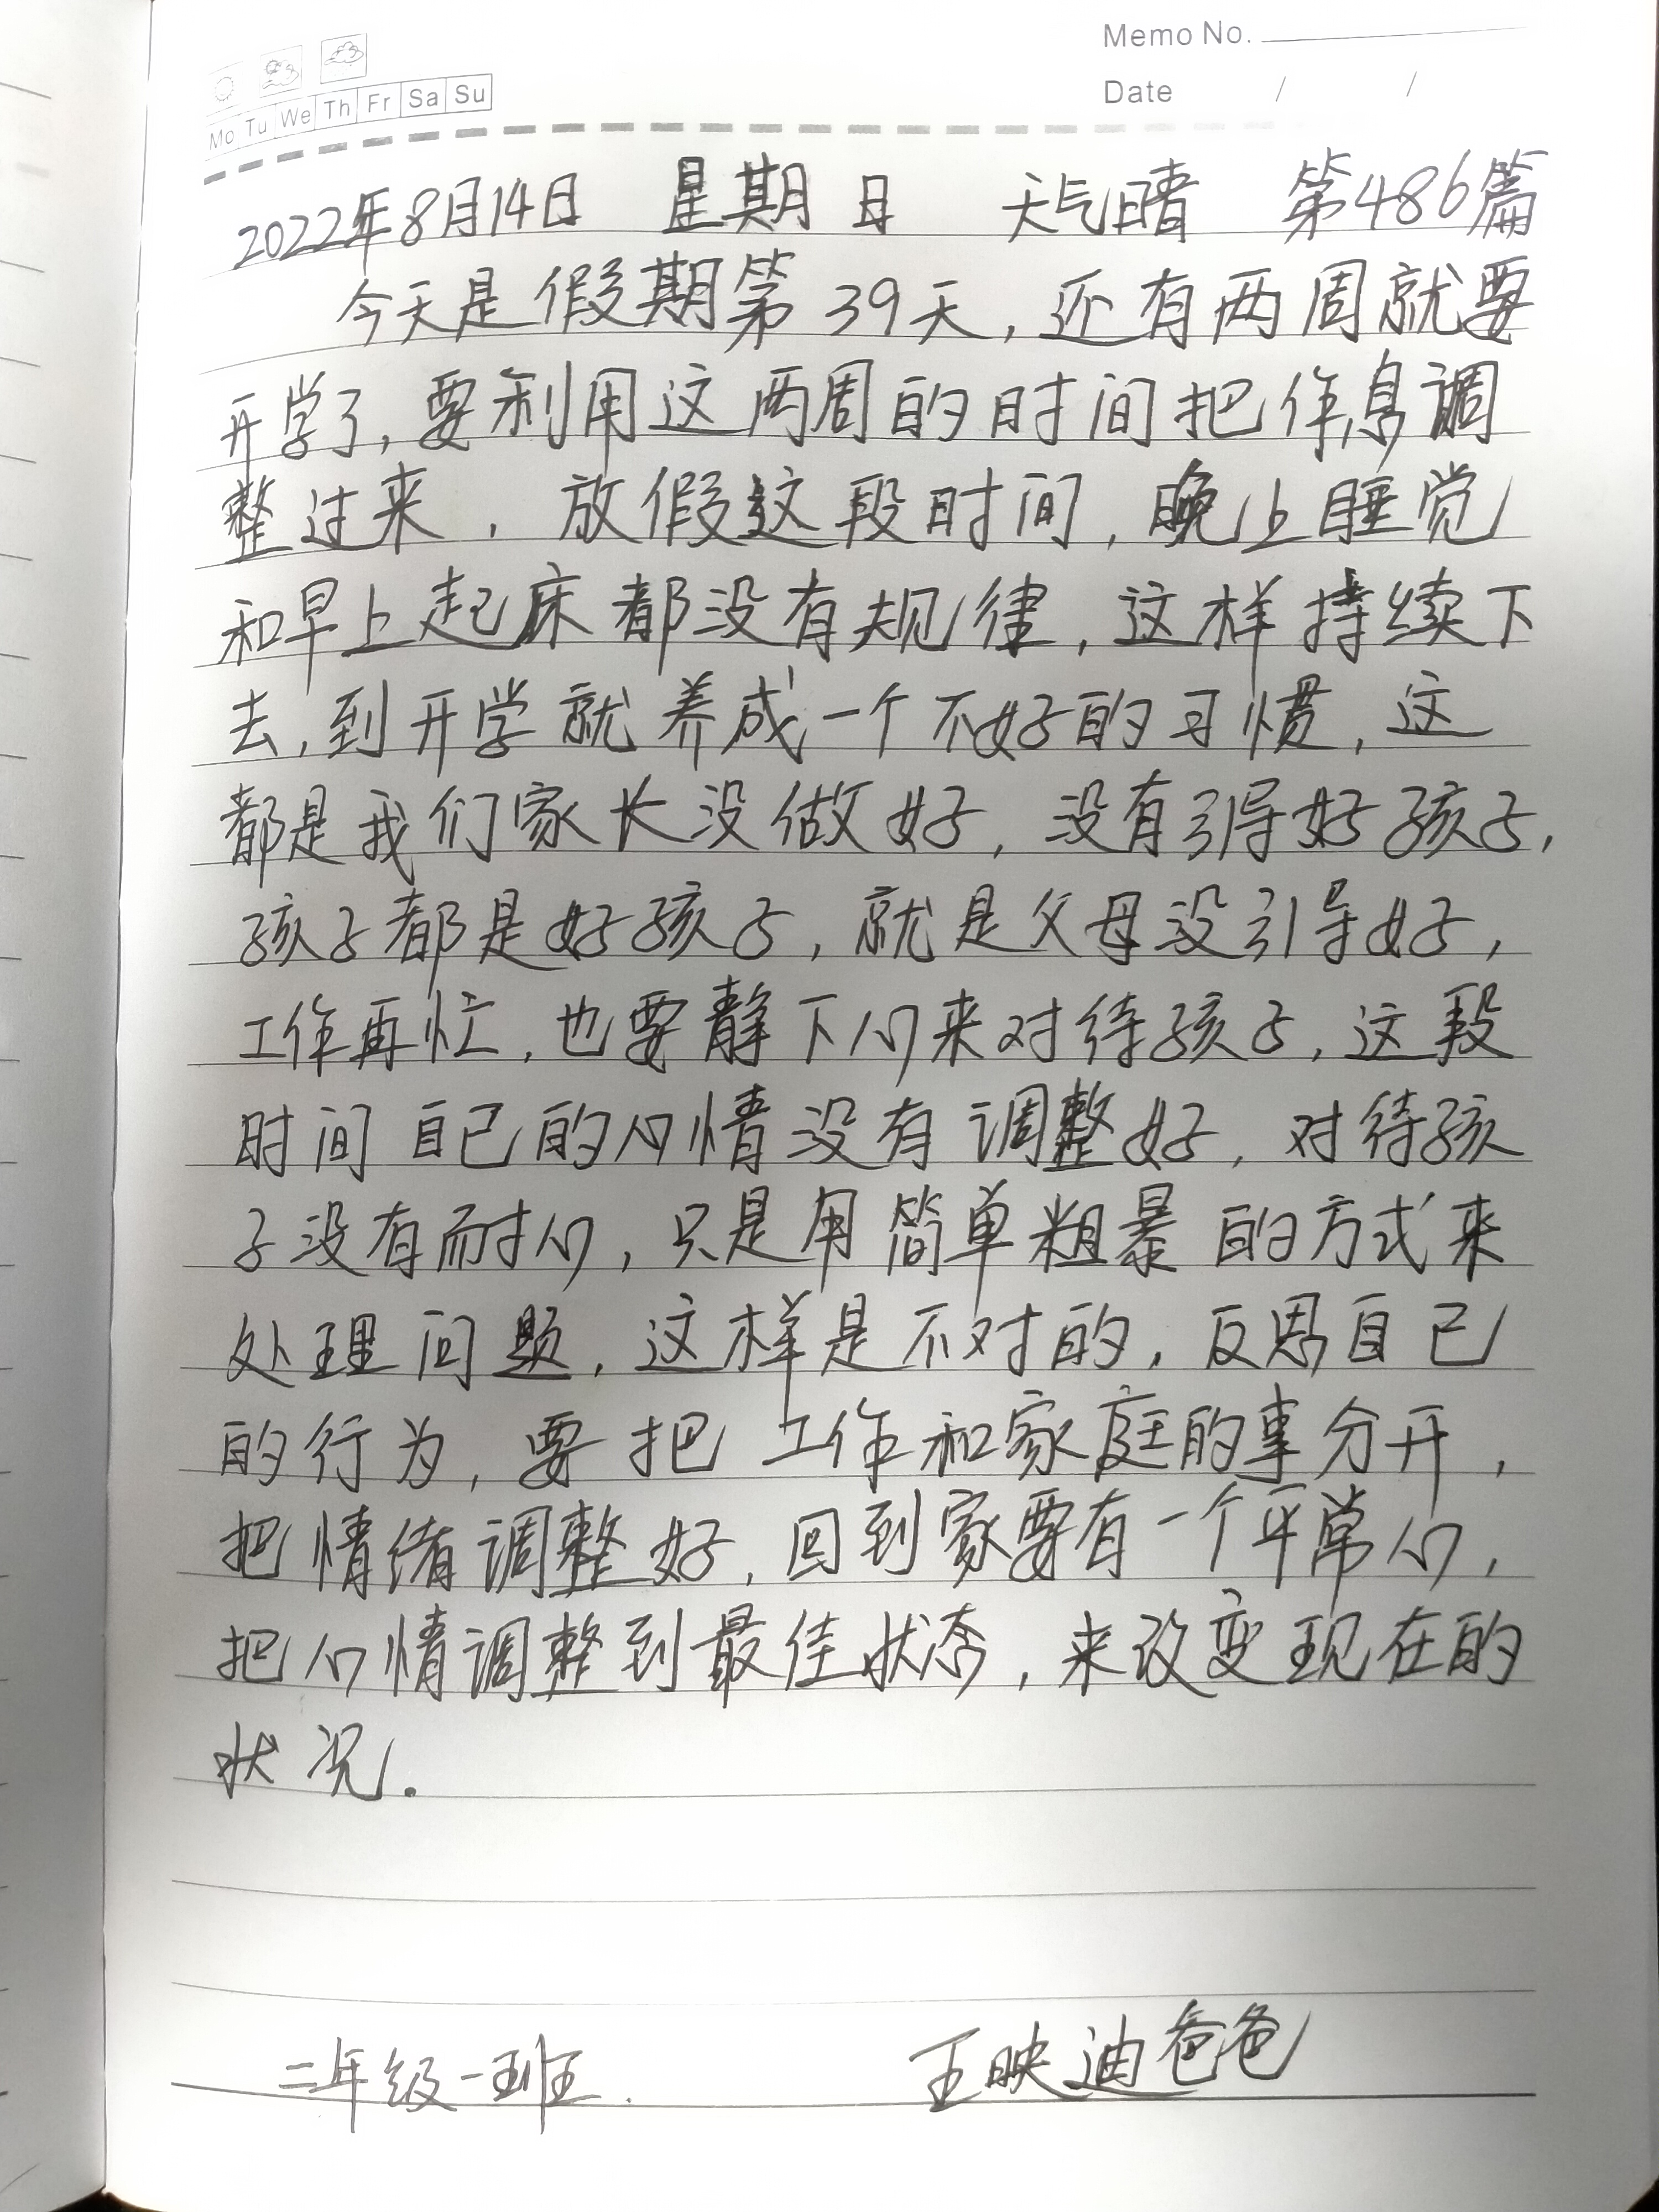 Memo No.
Mo Tu We Th Fr Sa Su
Date / /
2022年8月14日 星期日 天气晴 第486篇
今天是假期第39天,还有两周就要
开学了,要利用这两周的时间把作息调
整过来,放假这段时间,晚上睡觉
和早上起床都没有规律,这样持续下
去,到开学就养成一个不好的习惯,这
都是我们家长没做好,没有引导好孩子,
孩子都是好孩子,就是父母没引导好,
工作再忙,也要静下心来对待孩子,这段
时间自己的心情没有调整好,对待孩
子没有耐心,只是用简单粗暴的方式来
处理问题,这样是不对的,反思自己
的行为,要把工作和家庭的事分开,
把情绪调整好,回到家要有一个平常心,
把心情调整到最佳状态,来改变现在的
状况.
二年级一班.
王映迪爸爸